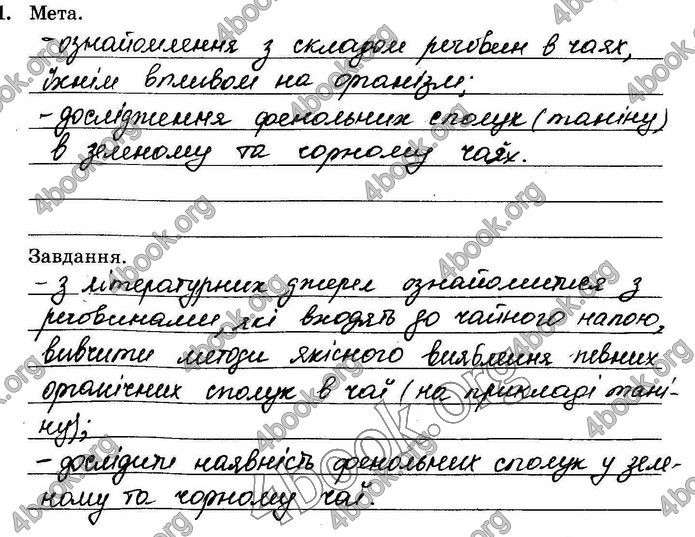 1. Мета.
- ознайомлення з складом речовин в чаях,
їхнім впливом на організм;
- дослідження фенольних сполук (таніну)
в зеленому та чорному чаях.
Завдання.
- з літературних джерел ознайомитися з
речовинами, які входять до чайного напою,
вивчити методи якісного виявлення певних
органічних сполук в чаї (на прикладі тані-
ну);
- дослідити наявність фенольних сполук у зеле-
ному та чорному чаї.
4book.org